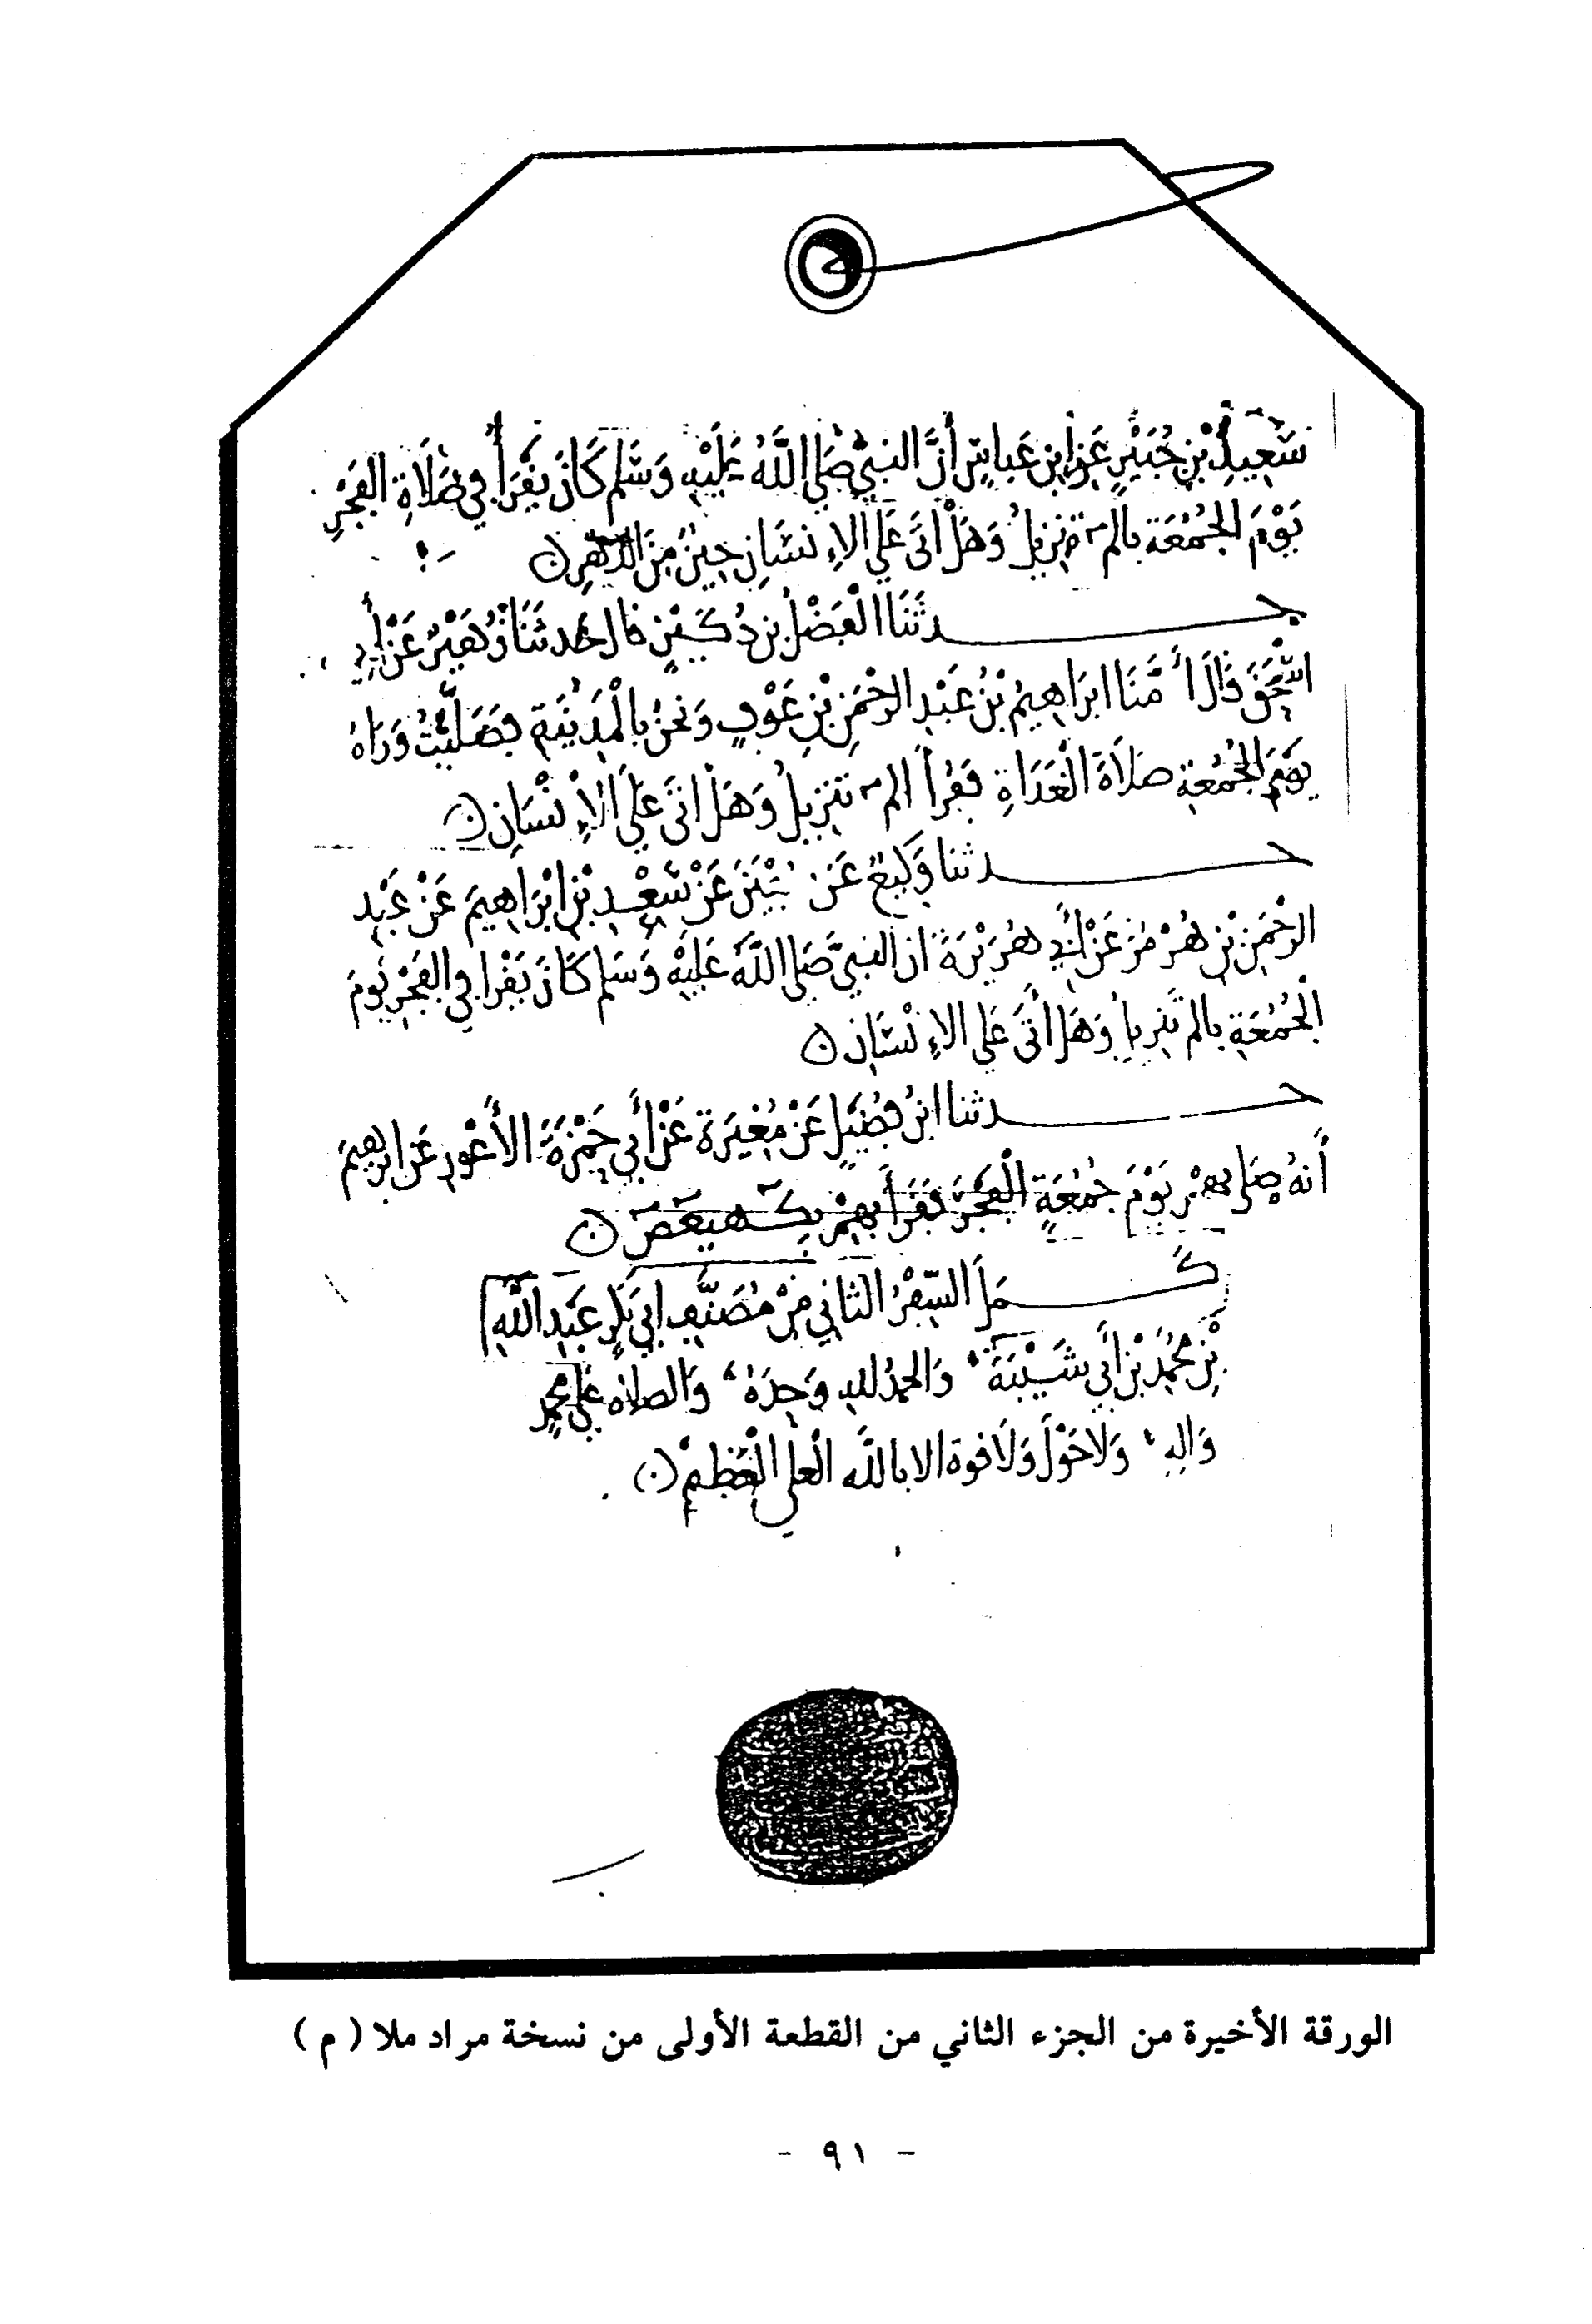 سَعِيدِ بْنِ جُبَيْرٍ عَنِ ابْنِ عَبَاسٍ أَنَّ النبيَّ صَلى اللَّهُ عَلَيْهِ وَسَّلم كَانَ يَقْرَأُ في صَلَاةِ الفَجْرِ
يَوْمَ الجُمُعَةِ بالم تنزيلُ وَهَلْ أتَى عَلَى الاِنسَانِ حِينٌ مِنَ الدَّهْرِ
حدثَنَا الْفَضْلُ بنِ دُكَيْنٍ قال حَدثنَا زُهَيْرٌ عَنْ أَبِي
اسْحَقَ قَالَ أمَّنَا ابرَاهِيمُ بْنُ عَبْدِ الرحْمَنِ بْنِ عَوْفٍ وَنحنُ بِالْمَدِينَةِ فَصَلَّيْتُ وَرَاهُ
يَوْمَ الجُمُعةِ صَلاَةَ الْغَدَاةِ فَقَرأ الم تنزِيلُ وَهَلْ اتَى عَلَى الإِنْسَانِ
حدثنا وَكِيعٌ عَن عَنْ سَعْدِ بْنِ ابْرَاهِيمَ عَنْ عَبْدِ
الرحْمَنِ بْنِ هُرْمُزَ عَنْ أَبِي هُرَيْرَةَ ان النبيَّ صَلى اللَّهُ عَلَيْهِ وَسَلم كَانَ يَقْرا في الفَجْرِ يَومَ
الْجُمُعَةِ بالم تنزيلُ وَهَلْ أَتَى عَلَى الاِنْسَانِ
حدثنا ابنُ فُضَيْلٍ عَنْ مُغِيرَة عَنْ أَبي حَمْزَةَ الأَعْورِ عَن ابرهِيمَ
أَنهُ صَلى بهمْ يَوْمَ جُمُعَةٍ الْفَجْرَ فَقَرَأَ بِهِمْ بِكهيعص
كَمَلَ السِّفْرُ الثاني مِنْ مُصَنَّفِ ابي بَكرٍ عَبْدِ اللَّهِ
بْنِ مُحَمَّدِ بْنِ أَبي شَيْبَةَ وَالحمدُ للهِ وَحدَهُ وَالصلاه عَلى محمد
وَالِهِ وَلَا حَوْلَ وَلَا قوة الا باللَّه الْعلي الْعَظِيمْ
الورقة الأخيرة من الجزء الثاني من القطعة الأولى من نسخة مراد ملا ( م )
- ٩١ -